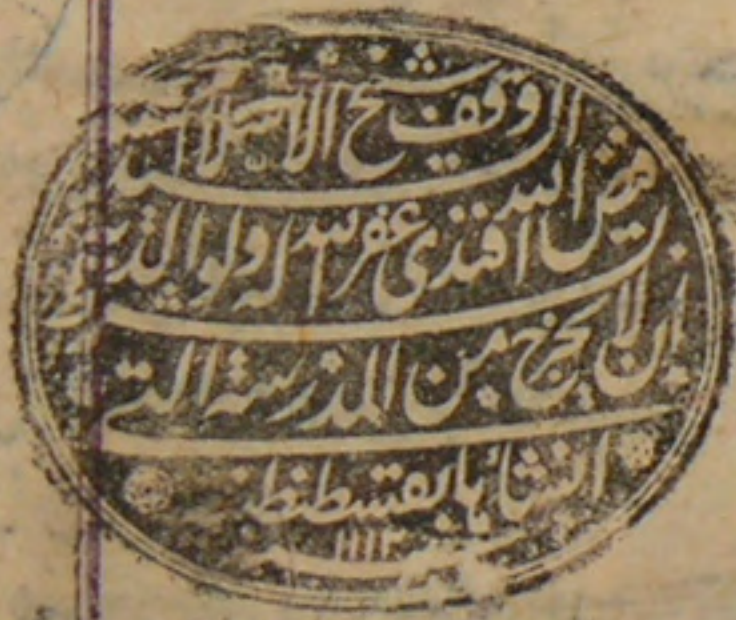 الوقف شيخ الاسلام السيد
فيض الله افندى غفر الله له ولوالديه
بشرط ان لا يخرج من المدرسة التى
انشأها بقسطنطينيه
١١١٣